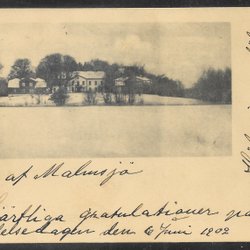 af Malmsjö
Hjärtliga gratulationer på
elsedagen den 6 Juni 1902